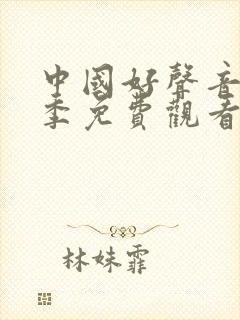 中國好聲音
季免費觀看
林妹霏